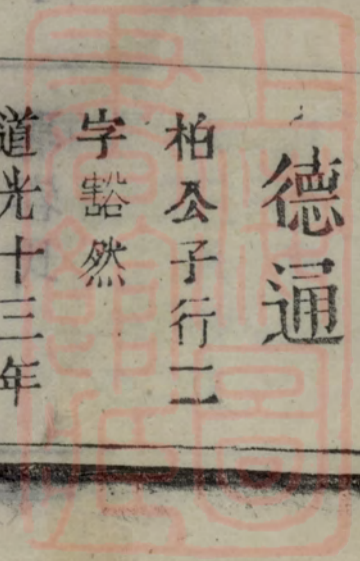 德通
柏公子行二
字豁然
道光十三年